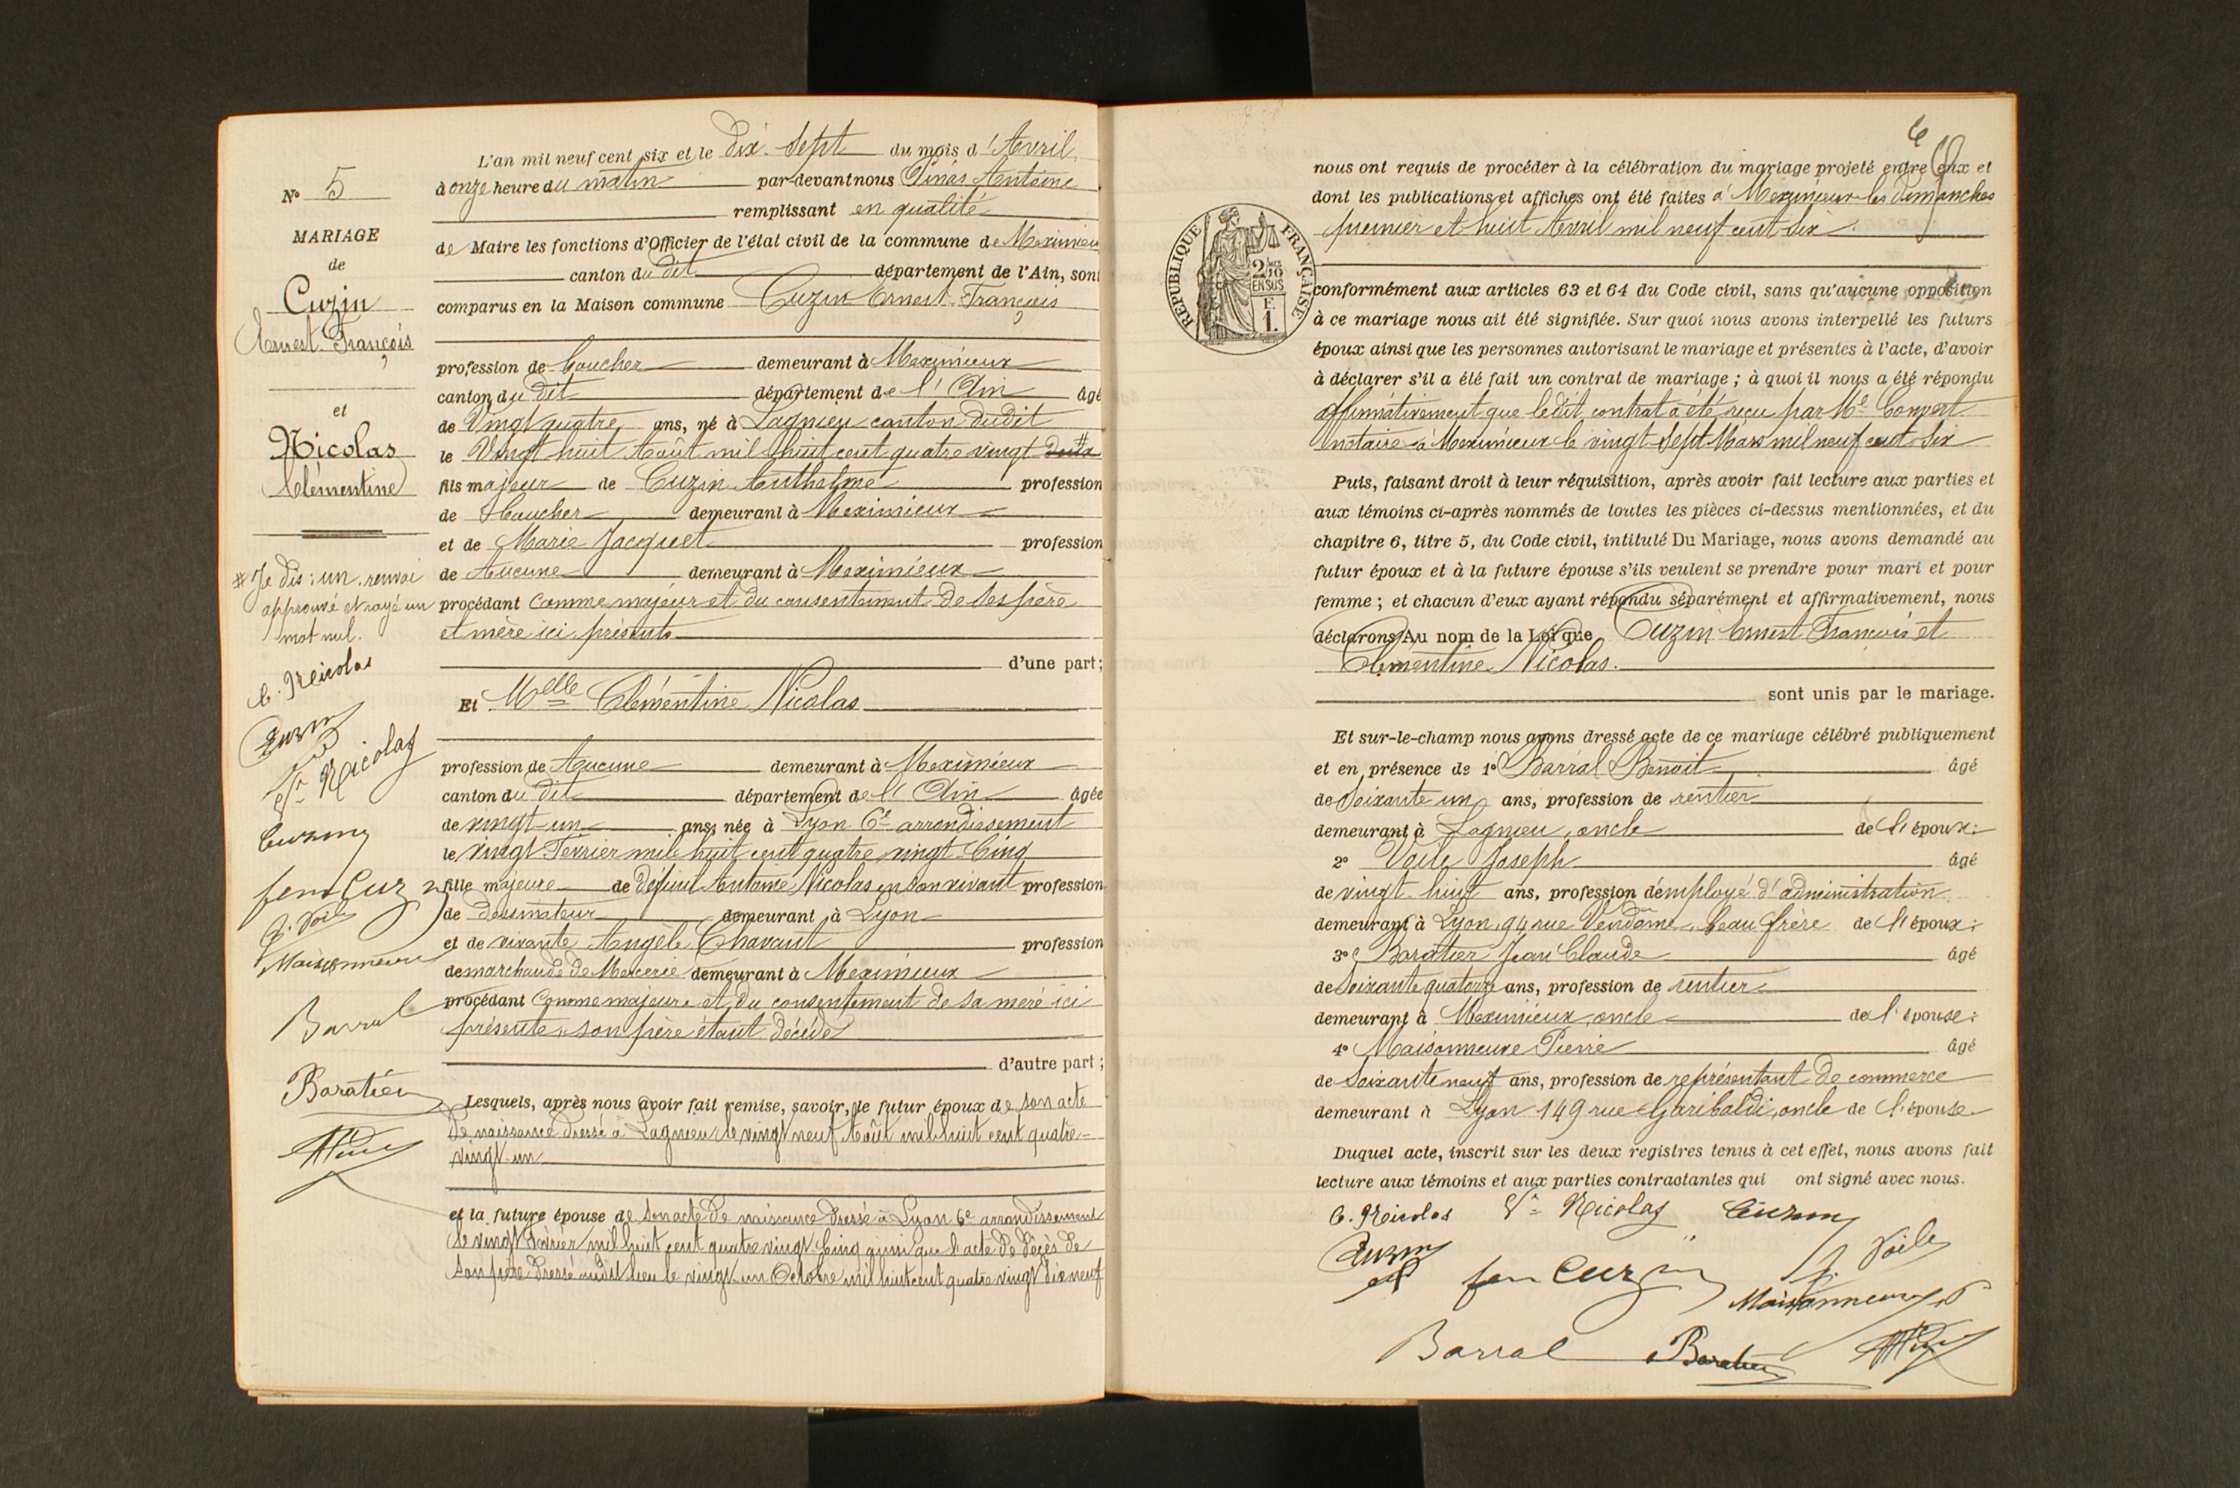 N° 5
MARIAGE
de
Cuzin
Ernest François
et
Nicolas
Clémentine
# Je dis : un. renvoi
approuvé et rayé un
mot nul.
C. Nicolas
Cuzin
Vve Nicolas
Cuzin
fem Cuzin
J. Voile
Maisonneuve
Barral
Baratier
L'an mil neuf cent six et le dix-sept du mois d'Avril
à onze heure du matin par-devant nous Pinás Antoine
remplissant en qualité
de Maire les fonctions d'Officier de l'état civil de la commune de Meximieu
canton du dit département de l'Ain, sont
comparus en la Maison commune Cuzin Ernest-François
profession de boucher demeurant à Meximieux
canton du dit département de l'Ain âgé
de Vingt quatre ans, né à Lagnieu canton dudit
le Vingt huit Août mil huit cent quatre vingt deux #
fils majeur de Cuzin Anthelme profession
de boucher demeurant à Meximieux
et de Marie Jacquet profession
de Aucune demeurant à Meximieux
procédant comme majeur et du consentement de ses père
et mère ici présents
d'une part;
Et Melle Clémentine Nicolas
profession de Aucune demeurant à Meximieux
canton du dit département de l'Ain âgée
de vingt-un ans, née à Lyon 6e arrondissement
le vingt Février mil huit cent quatre vingt Cinq
fille majeure de défunt Antoine Nicolas en son vivant profession
de dessinateur demeurant à Lyon
et de vivante Angèle Chavant profession
de marchande de Mercerie demeurant à Meximieux
procédant comme majeure et du consentement de sa mère ici
présente, son père étant décédé
d'autre part;
Lesquels, après nous avoir fait remise, savoir, le futur époux de son acte
de naissance dressé à Lagnieu le vingt neuf Août mil huit cent quatre-
vingt-un
et la future épouse de son acte de naissance dressé à Lyon 6e arrondissement
le vingt Février mil huit cent quatre vingt Cinq ainsi que l'acte de décès de
son père dressé audit lieu le vingt-un Octobre mil huit cent quatre vingt dix neuf
6
nous ont requis de procéder à la célébration du mariage projeté entre eux et
dont les publications et affiches ont été faites à Meximieux les dimanches
premier et huit Avril mil neuf cent six
REPUBLIQUE FRANÇAISE
2/10 EN SUS
F.
1.
conformément aux articles 63 et 64 du Code civil, sans qu'aucune opposition
à ce mariage nous ait été signifiée. Sur quoi nous avons interpellé les futurs
époux ainsi que les personnes autorisant le mariage et présentes à l'acte, d'avoir
à déclarer s'il a été fait un contrat de mariage ; à quoi il nous a été répondu
affirmativement que ledit contrat a été reçu par Me Convert
notaire à Meximieux le vingt sept Mars mil neuf cent-six
Puis, faisant droit à leur réquisition, après avoir fait lecture aux parties et
aux témoins ci-après nommés de toutes les pièces ci-dessus mentionnées, et du
chapitre 6, titre 5, du Code civil, intitulé Du Mariage, nous avons demandé au
futur époux et à la future épouse s'ils veulent se prendre pour mari et pour
femme ; et chacun d'eux ayant répondu séparément et affirmativement, nous
déclarons Au nom de la Loi que Cuzin Ernest François et
Clémentine Nicolas.
sont unis par le mariage.
Et sur-le-champ nous avons dressé acte de ce mariage célébré publiquement
et en présence de 1° Barral Benoit âgé
de Soixante un ans, profession de rentier
demeurant à Lagnieu, oncle de l'époux :
2° Voile Joseph âgé
de vingt-huit ans, profession d'employé d'administration
demeurant à Lyon, 94 rue Vendôme, beau frère de l'époux :
3° Baratier Jean Claude âgé
de Soixante quatorze ans, profession de rentier
demeurant à Meximieux, oncle de l'épouse :
4° Maisonneuve Pierre âgé
de Soixante neuf ans, profession de représentant de commerce
demeurant à Lyon 149 rue Garibaldi, oncle de l'épouse
Duquel acte, inscrit sur les deux registres tenus à cet effet, nous avons fait
lecture aux témoins et aux parties contractantes qui ont signé avec nous.
C. Nicolas Vve Nicolas Cuzin
Cuzin fem Cuzin J. Voile
Maisonneuve
Barral Baratier